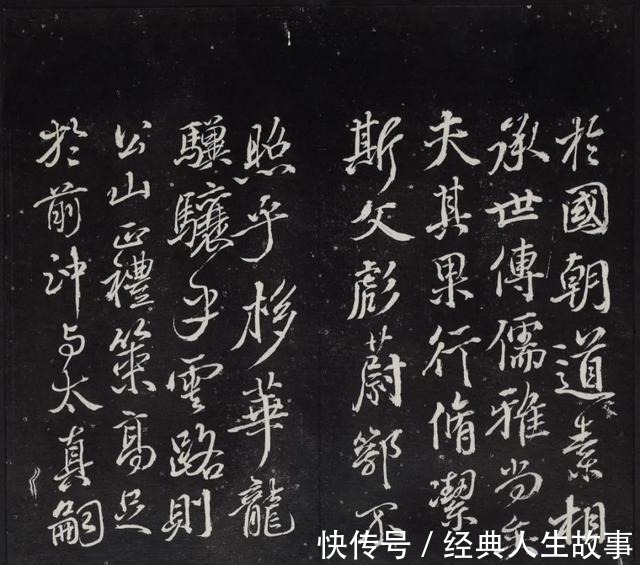 於國朝道素相
承世傳儒雅尚矣
夫其果行脩潔
斯文彪蔚鄂不
照乎栘華龍
驥驤乎雲路則
公山正禮策高足
於前沖与太真嗣
快传号 / 经典人生故事